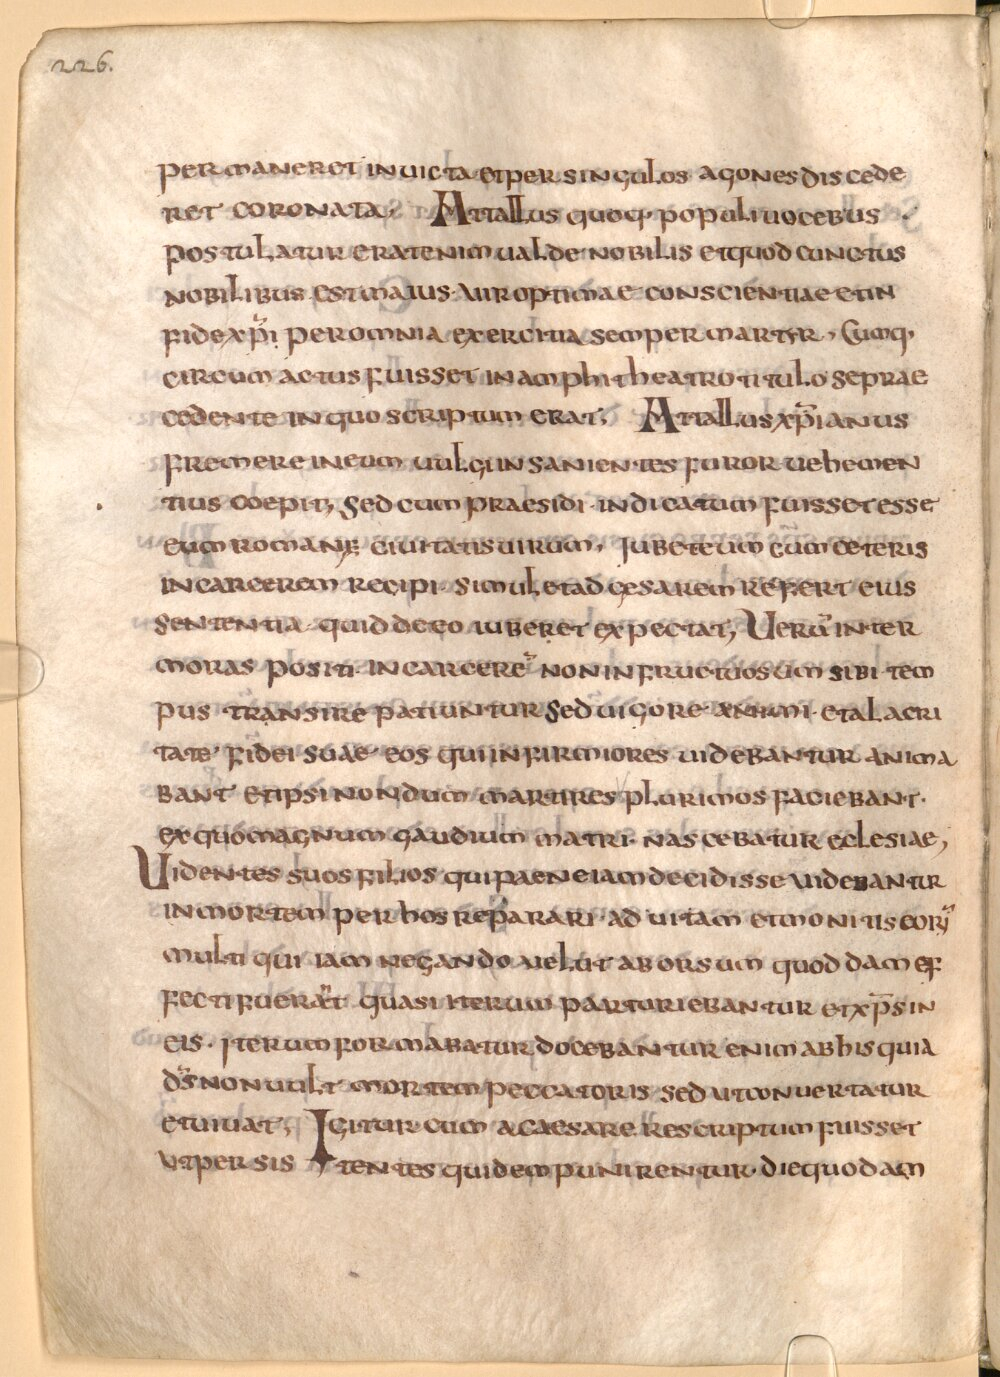 226.
permaneret inuicta et per singulos agones discede
ret coronata, Attallus quoq· populi uocebus
postulatur erat enim ualde nobilis et quod cunctus
nobilibus est maius · uir optimae conscientiae et in
fide xp̄i per omnia exercitia semper martyr, Cumq·
circumactus fuisset in amphitheatro titulo se prae
cedente in quo scriptum erat, Attallus xp̄ianus
fremere in eum uulgi insanientes furor uehemen
tius coepit, sed cum praesidi indicatum fuisset esse
eum romanę ciuitatis uirum, Iubet eum cum ceteris
in carcerem recipi · simul et ad cesarem refert eius
sententia quid de eo iuberet expectat, Uerū inter
moras positi in carcerē non infructuosum sibi tem
pus transire patiuntur sed uigore animi · et alacri
tate fidei suae eos qui infirmiores uidebantur anima
bant et ipsi nondum martires plurimos faciebant ·
ex quo magnum gaudium matri · nascebatur eclesiae,
Uidentes suos filios qui paene iam decidisse uidebantur
in mortem per hos reparari · ad uitam et monitis eorū
multi qui iam negando uelut aborsum quoddam ef
fecti fuerāt quasi iterum parturiebantur et xp̄s in
eis · iterum formabatur docebantur enim ab his quia
d̄s non uult mortem peccatoris sed ut conuertatur
et uiuat, Igitur cum a caesare rescriptum fuisset
ut persistentes quidem punirentur · die quodam